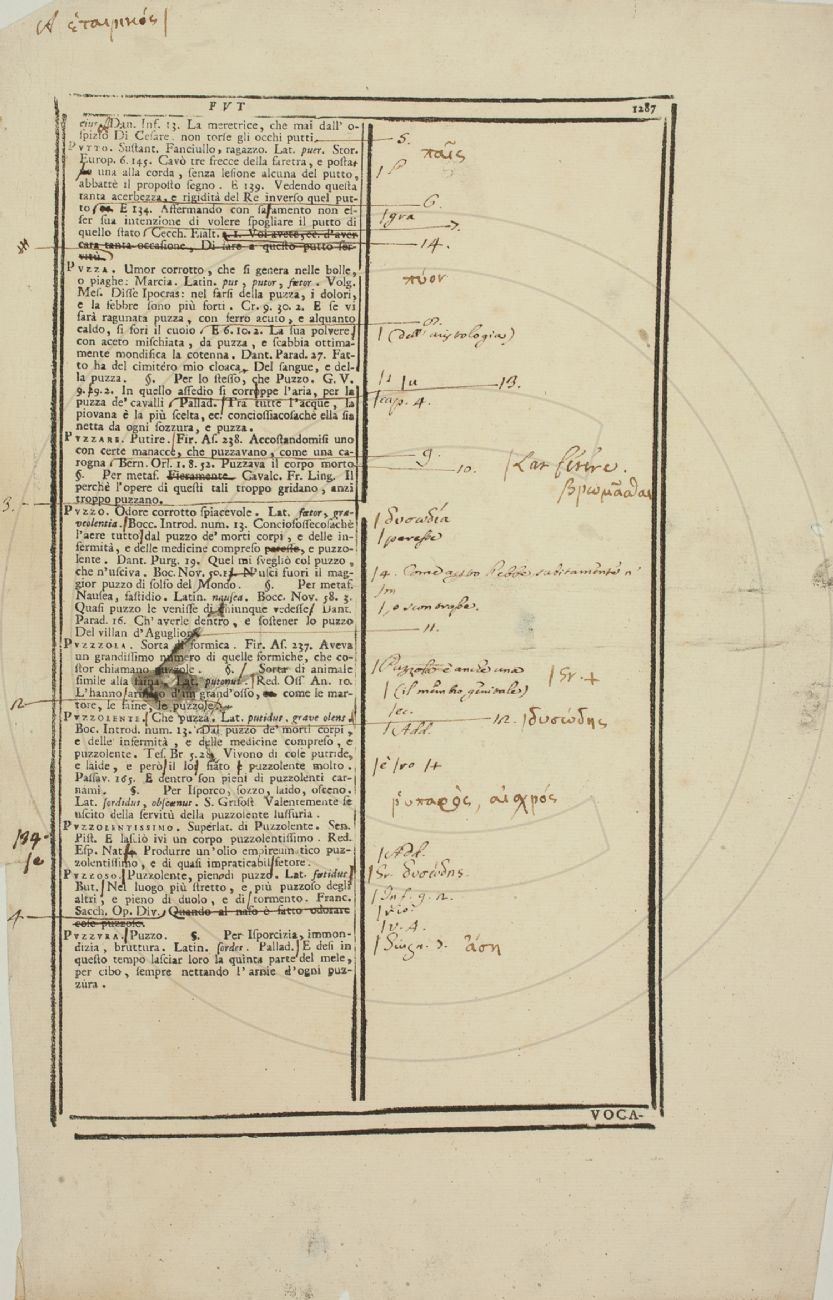 A ἑταιρικός
PVT
1287
eius. Dan. Inf. 13. La meretrice, che mai dall' o-
spizio Di Cesare non torse gli occhi putti.
PVTTO. Sustant. Fanciullo, ragazzo. Lat. puer. Stor.
Europ. 6. 145. Cavò tre frecce della faretra, e posta-
una alla corda, senza lesione alcuna del putto,
abbattè il proposto segno. E 139. Vedendo questa
tanta acerbezza, e rigidità del Re inverso quel put-
to E 134. Affermando con saramento non es-
ser sua intenzione di volere spogliare il putto di
quello stato Cecch. Esalt. 1. 1. Voi avete, ec. d'aver
cara tanta occasione, Di fare a questo putto ser-
vitù.
PVZZA. Umor corrotto, che si genera nelle bolle,
o piaghe: Marcia. Latin. pus, putor, fœtor. Volg.
Mes. Disse Ipocras: nel farsi della puzza, i dolori,
e la febbre sono più forti. Cr. 9. 30. 2. E se vi
sarà ragunata puzza, con ferro acuto, e alquanto
caldo, si fori il cuoio E 6. 10. 2. La sua polvere
con aceto mischiata, da puzza, e scabbia ottima-
mente mondifica la cotenna. Dant. Parad. 27. Fat-
to ha del cimitéro mio cloaca, Del sangue, e del-
la puzza. §. Per lo stesso, che Puzzo. G. V.
9. 79. 2. In quello assedio si corroppe l'aria, per la
puzza de' cavalli Pallad. Tra tutte l'acque, la
piovana è la più scelta, ec. conciossiacosachè ella sia
netta da ogni sozzura, e puzza.
PVZZARE. Putire. Fir. As. 238. Accostandomisi uno
con certe manacce, che puzzavano, come una ca-
rogna Bern. Orl. 1. 8. 52. Puzzava il corpo morto
§. Per metaf. Fieramente. Cavalc. Fr. Ling. Il
perchè l'opere di questi tali troppo gridano, anzi
troppo puzzano.
PVZZO. Odore corrotto spiacevole. Lat. fœtor, gra-
veolentia. Bocc. Introd. num. 13. Conciofossecosachè
l'aere tutto dal puzzo de' morti corpi, e delle in-
fermità, e delle medicine compreso paresse, e puzzo-
lente. Dant. Purg. 19. Quel mi svegliò col puzzo,
che n'usciva. Boc. Nov. 50. 15. N'uscì fuori il mag-
gior puzzo di solfo del Mondo. §. Per metaf.
Nausea, fastidio. Latin. nausea. Bocc. Nov. 58. 3.
Quasi puzzo le venisse di chiunque vedesse Dant.
Parad. 16. Ch'averle dentro, e sostener lo puzzo
Del villan d'Aguglion.
PVZZOLA. Sorta di formica. Fir. As. 237. Aveva
un grandissimo numero di quelle formiche, che co-
stor chiamano puzzole. §. Sorta di animale
simile alla faina. Lat. putorius. Red. Oss. An. 10.
L'hanno armato d'un grand'osso, come le mar-
tore, le faine, le puzzole.
PVZZOLENTE. Che puzza. Lat. putidus, grave olens.
Boc. Introd. num. 13. Dal puzzo de' morti corpi,
e delle infermità, e delle medicine compreso, e
puzzolente. Tes. Br 5. 28. Vivono di cose putride,
e laide, e però il loro fiato è puzzolente molto.
Passav. 165. E dentro son pieni di puzzolenti car-
nami. §. Per Isporco, sozzo, laido, osceno.
Lat. sordidus, obscœnus. S. Grisost. Valentemente se
uscito della servitù della puzzolente lussuria.
PVZZOLENTISSIMO. Superlat. di Puzzolente. Sen.
Pist. E lasciò ivi un corpo puzzolentissimo. Red.
Esp. Nat. Produrre un'olio empireumatico puz-
zolentissimo, e di quasi impraticabil fetore.
PVZZOSO. Puzzolente, pieno di puzzo. Lat. fœtidus.
But. Nel luogo più stretto, e più puzzoso degli
altri, e pieno di duolo, e di tormento. Franc.
Sacch. Op. Div. Quando al naso è fatto odorare
cose puzzose.
PVZZVRA. Puzzo. §. Per Isporcizia, immon-
dizia, bruttura. Latin. sordes. Pallad. E desi in
questo tempo lasciar loro la quinta parte del mele,
per cibo, sempre nettando l'arnie d'ogni puz-
zura.
5.
παῖς
6.
gra
7.
14.
πύον
8.
(dell' aristologia)
13.
cap. 4.
9.
10.
Lat. fetere.
βρωμᾶσθαι
3.
δυσωδία
paresse
11.
Puzzola è anche una
(il membro genitale)
ec.
12.
δυσώδης
Add.
2.
ῥυπαρός, αἰσχρός
Add.
Gr. δυσώδης.
Inf. 9. 2.
4.
v. 4.
Giugn. 7. ἄση
VOCA-